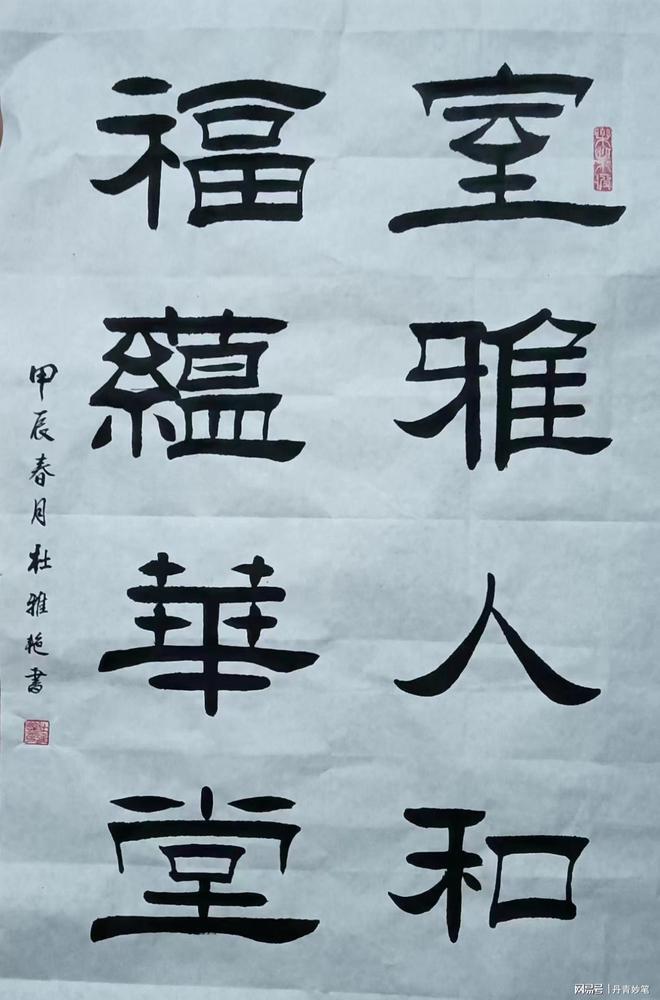 室雅人和
福蘊華堂
甲辰春月杜雅艳書
网易号 | 丹青妙笔